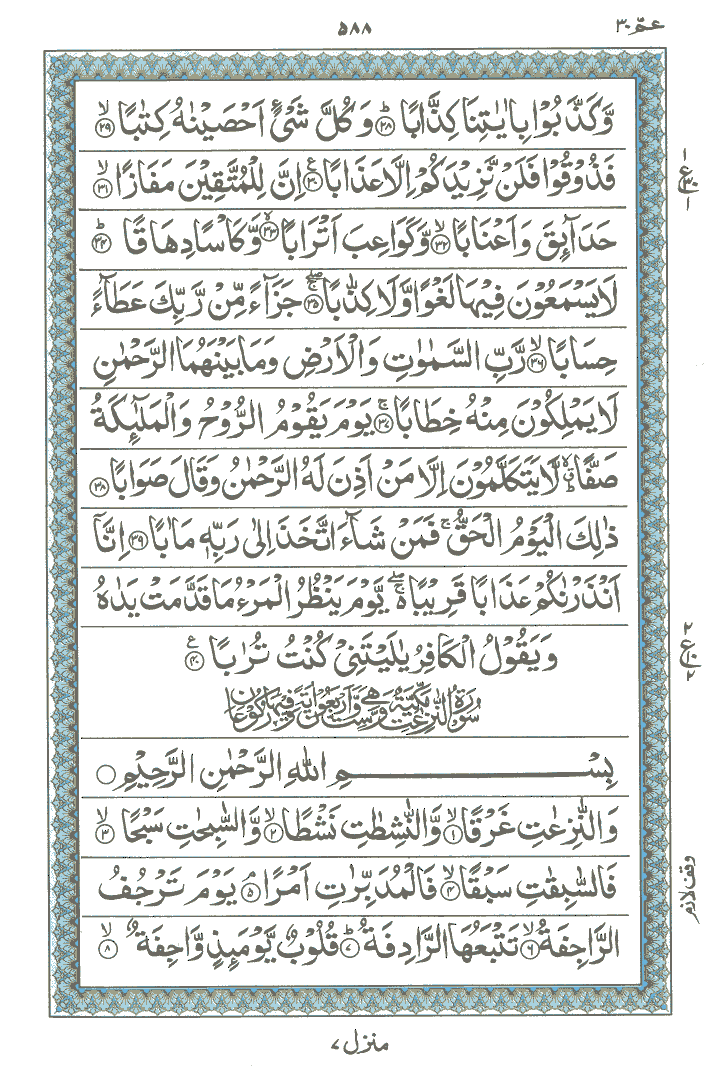 عمّ ٣٠
٥٨٨
وَّكَذَّبُوْا بِاٰيٰتِنَا كِذَّابًا ؕ﴿۲۸﴾ وَكُلَّ شَیْءٍ اَحْصَيْنٰهُ كِتٰبًا ۙ﴿۲۹﴾
فَذُوْقُوْا فَلَنْ نَّزِيْدَكُمْ اِلَّا عَذَابًا ﴿۳۰﴾ ع اِنَّ لِلْمُتَّقِيْنَ مَفَازًا ۙ﴿۳۱﴾
١ ع ٣٠ ١
حَدَآئِقَ وَاَعْنَابًا ۙ﴿۳۲﴾ وَّكَوَاعِبَ اَتْرَابًا ۙ﴿۳۳﴾ وَّكَاْسًا دِهَاقًا ؕ﴿۳۴﴾
لَا يَسْمَعُوْنَ فِيْهَا لَغْوًا وَّلَا كِذّٰبًا ۚ﴿۳۵﴾ جَزَآءً مِّنْ رَّبِّكَ عَطَآءً
حِسَابًا ۙ﴿۳۶﴾ رَّبِّ السَّمٰوٰتِ وَالْاَرْضِ وَمَا بَيْنَهُمَا الرَّحْمٰنِ
لَا يَمْلِكُوْنَ مِنْهُ خِطَابًا ۚ﴿۳۷﴾ يَوْمَ يَقُوْمُ الرُّوْحُ وَالْمَلٰٓئِكَةُ
صَفًّا ۙؕ لَّا يَتَكَلَّمُوْنَ اِلَّا مَنْ اَذِنَ لَهُ الرَّحْمٰنُ وَقَالَ صَوَابًا ﴿۳۸﴾
ذٰلِكَ الْيَوْمُ الْحَقُّ ۚ فَمَنْ شَآءَ اتَّخَذَ اِلٰى رَبِّهٖ مَاٰبًا ﴿۳۹﴾ اِنَّاۤ
اَنْذَرْنٰكُمْ عَذَابًا قَرِيْبًا ۚۖ يَّوْمَ يَنْظُرُ الْمَرْءُ مَا قَدَّمَتْ يَدٰهُ
وَيَقُوْلُ الْكَافِرُ يٰلَيْتَنِیْ كُنْتُ تُرٰبًا ﴿۴۰﴾ ع
٢ ع ١٠ ٢
سُوْرَةُ النّٰزِعٰتِ مَكِّيَّةٌ وَّهِیَ سِتٌّ وَّاَرْبَعُوْنَ اٰيَةً وَّفِيْهَا رُكُوْعَانِ
بِسْمِ اللّٰهِ الرَّحْمٰنِ الرَّحِيْمِ
وَالنّٰزِعٰتِ غَرْقًا ۙ﴿۱﴾ وَّالنّٰشِطٰتِ نَشْطًا ۙ﴿۲﴾ وَّالسّٰبِحٰتِ سَبْحًا ۙ﴿۳﴾
فَالسّٰبِقٰتِ سَبْقًا ۙ﴿۴﴾ فَالْمُدَبِّرٰتِ اَمْرًا ۘ﴿۵﴾ يَوْمَ تَرْجُفُ
وقف لازم
الرَّاجِفَةُ ۙ﴿۶﴾ تَتْبَعُهَا الرَّادِفَةُ ؕ﴿۷﴾ قُلُوْبٌ يَّوْمَئِذٍ وَّاجِفَةٌ ۙ﴿۸﴾
منزل ٧